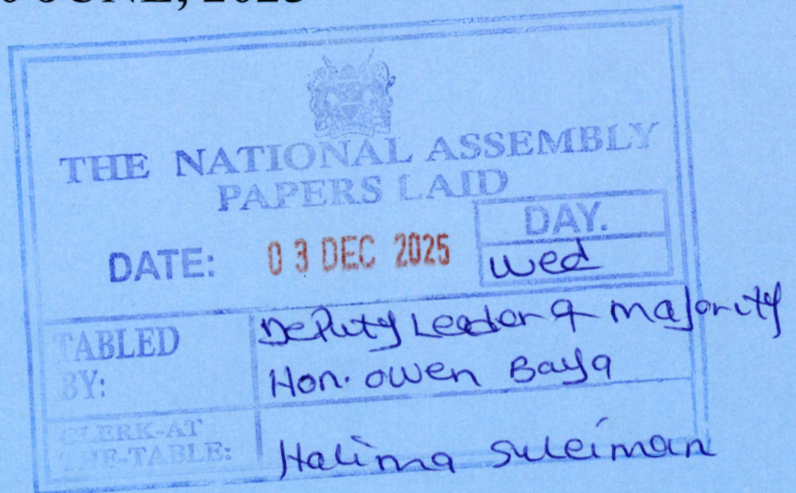 JUNE, 2025
THE NATIONAL ASSEMBLY
PAPERS LAID
DATE: 03 DEC 2025
DAY.
Wed
TABLED BY:
Deputy Leader of Majority
Hon. Owen Baya
CLERK-AT THE-TABLE:
Halima Suleiman